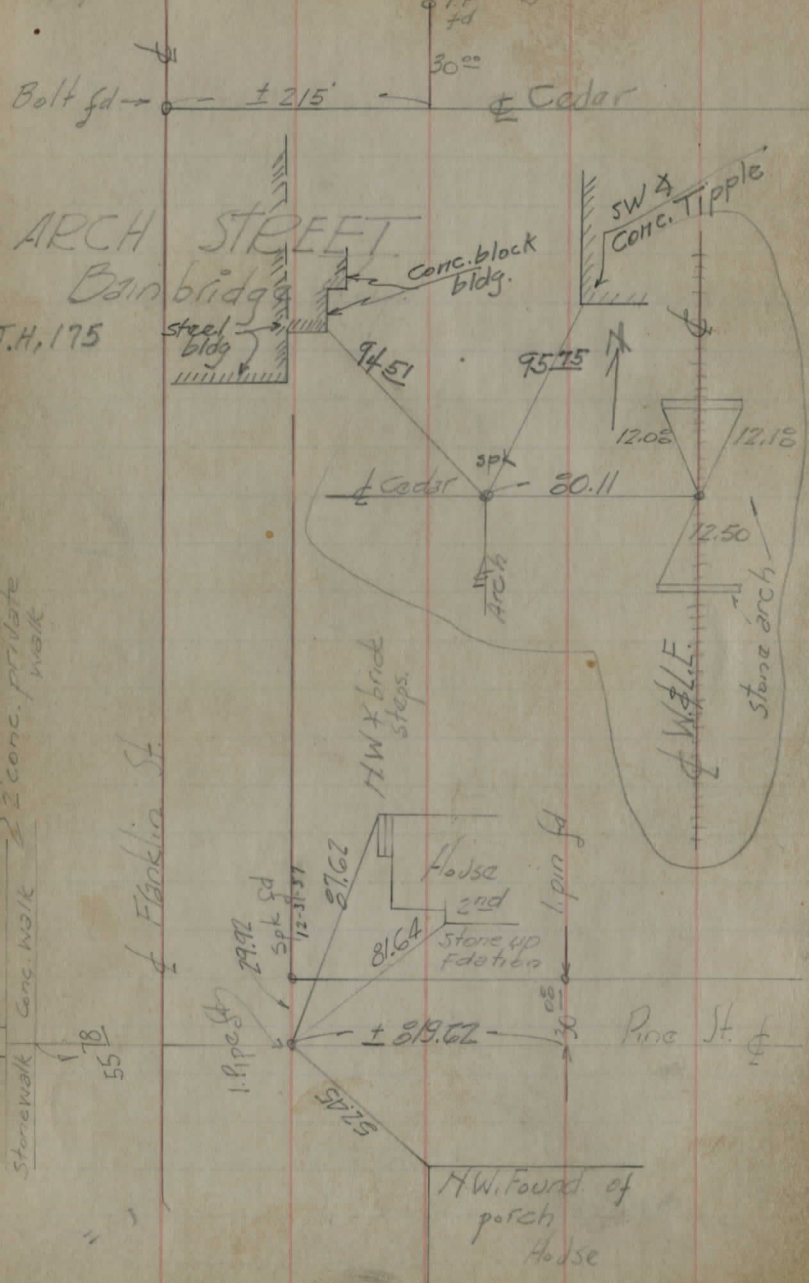 fd
30 00
Bolt fd
± 215'
℄ Cedar
ARCH STREET
Bainbridge
T.H. 175
steel
bldg
Conc. block
bldg.
SW ∡
Conc. Tipple
94.51
95.75
12.08
12.18
spk
℄ Cedar
80.11
12.50
Arch
stone arch
℄ W.&L.E.
2' conc. private
walk
℄ Franklin St.
NW ∡ brick
steps.
87.62
House
2nd
Stone up
Fdation
81.64
29.92
Spk fd
12-31-57
I. pin fd
I. Pipe fd
± 319.62
30 00
Pine St. ℄
Stone walk
Conc. walk
55 78
52.05
N.W. Found of
porch
House